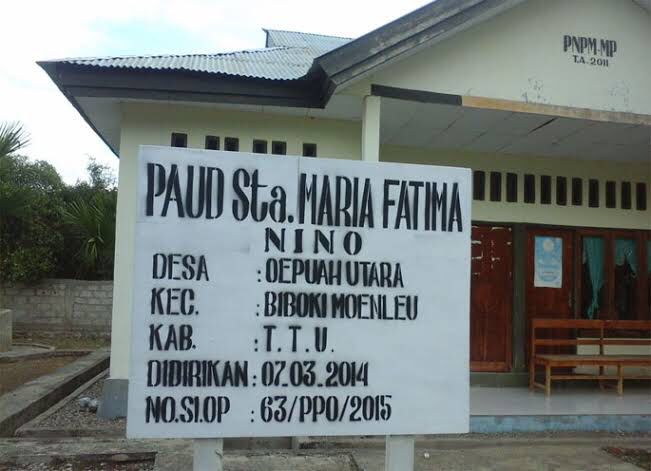 PNPM-MP
T.A. 2011
PAUD Sta. MARIA FATIMA
NINO
DESA : OEPUAH UTARA
KEC. : BIBOKI MOENLEU
KAB. : T.T.U.
DIDIRIKAN : 07.03.2014
NO.SI.OP : 63/PPO/2015